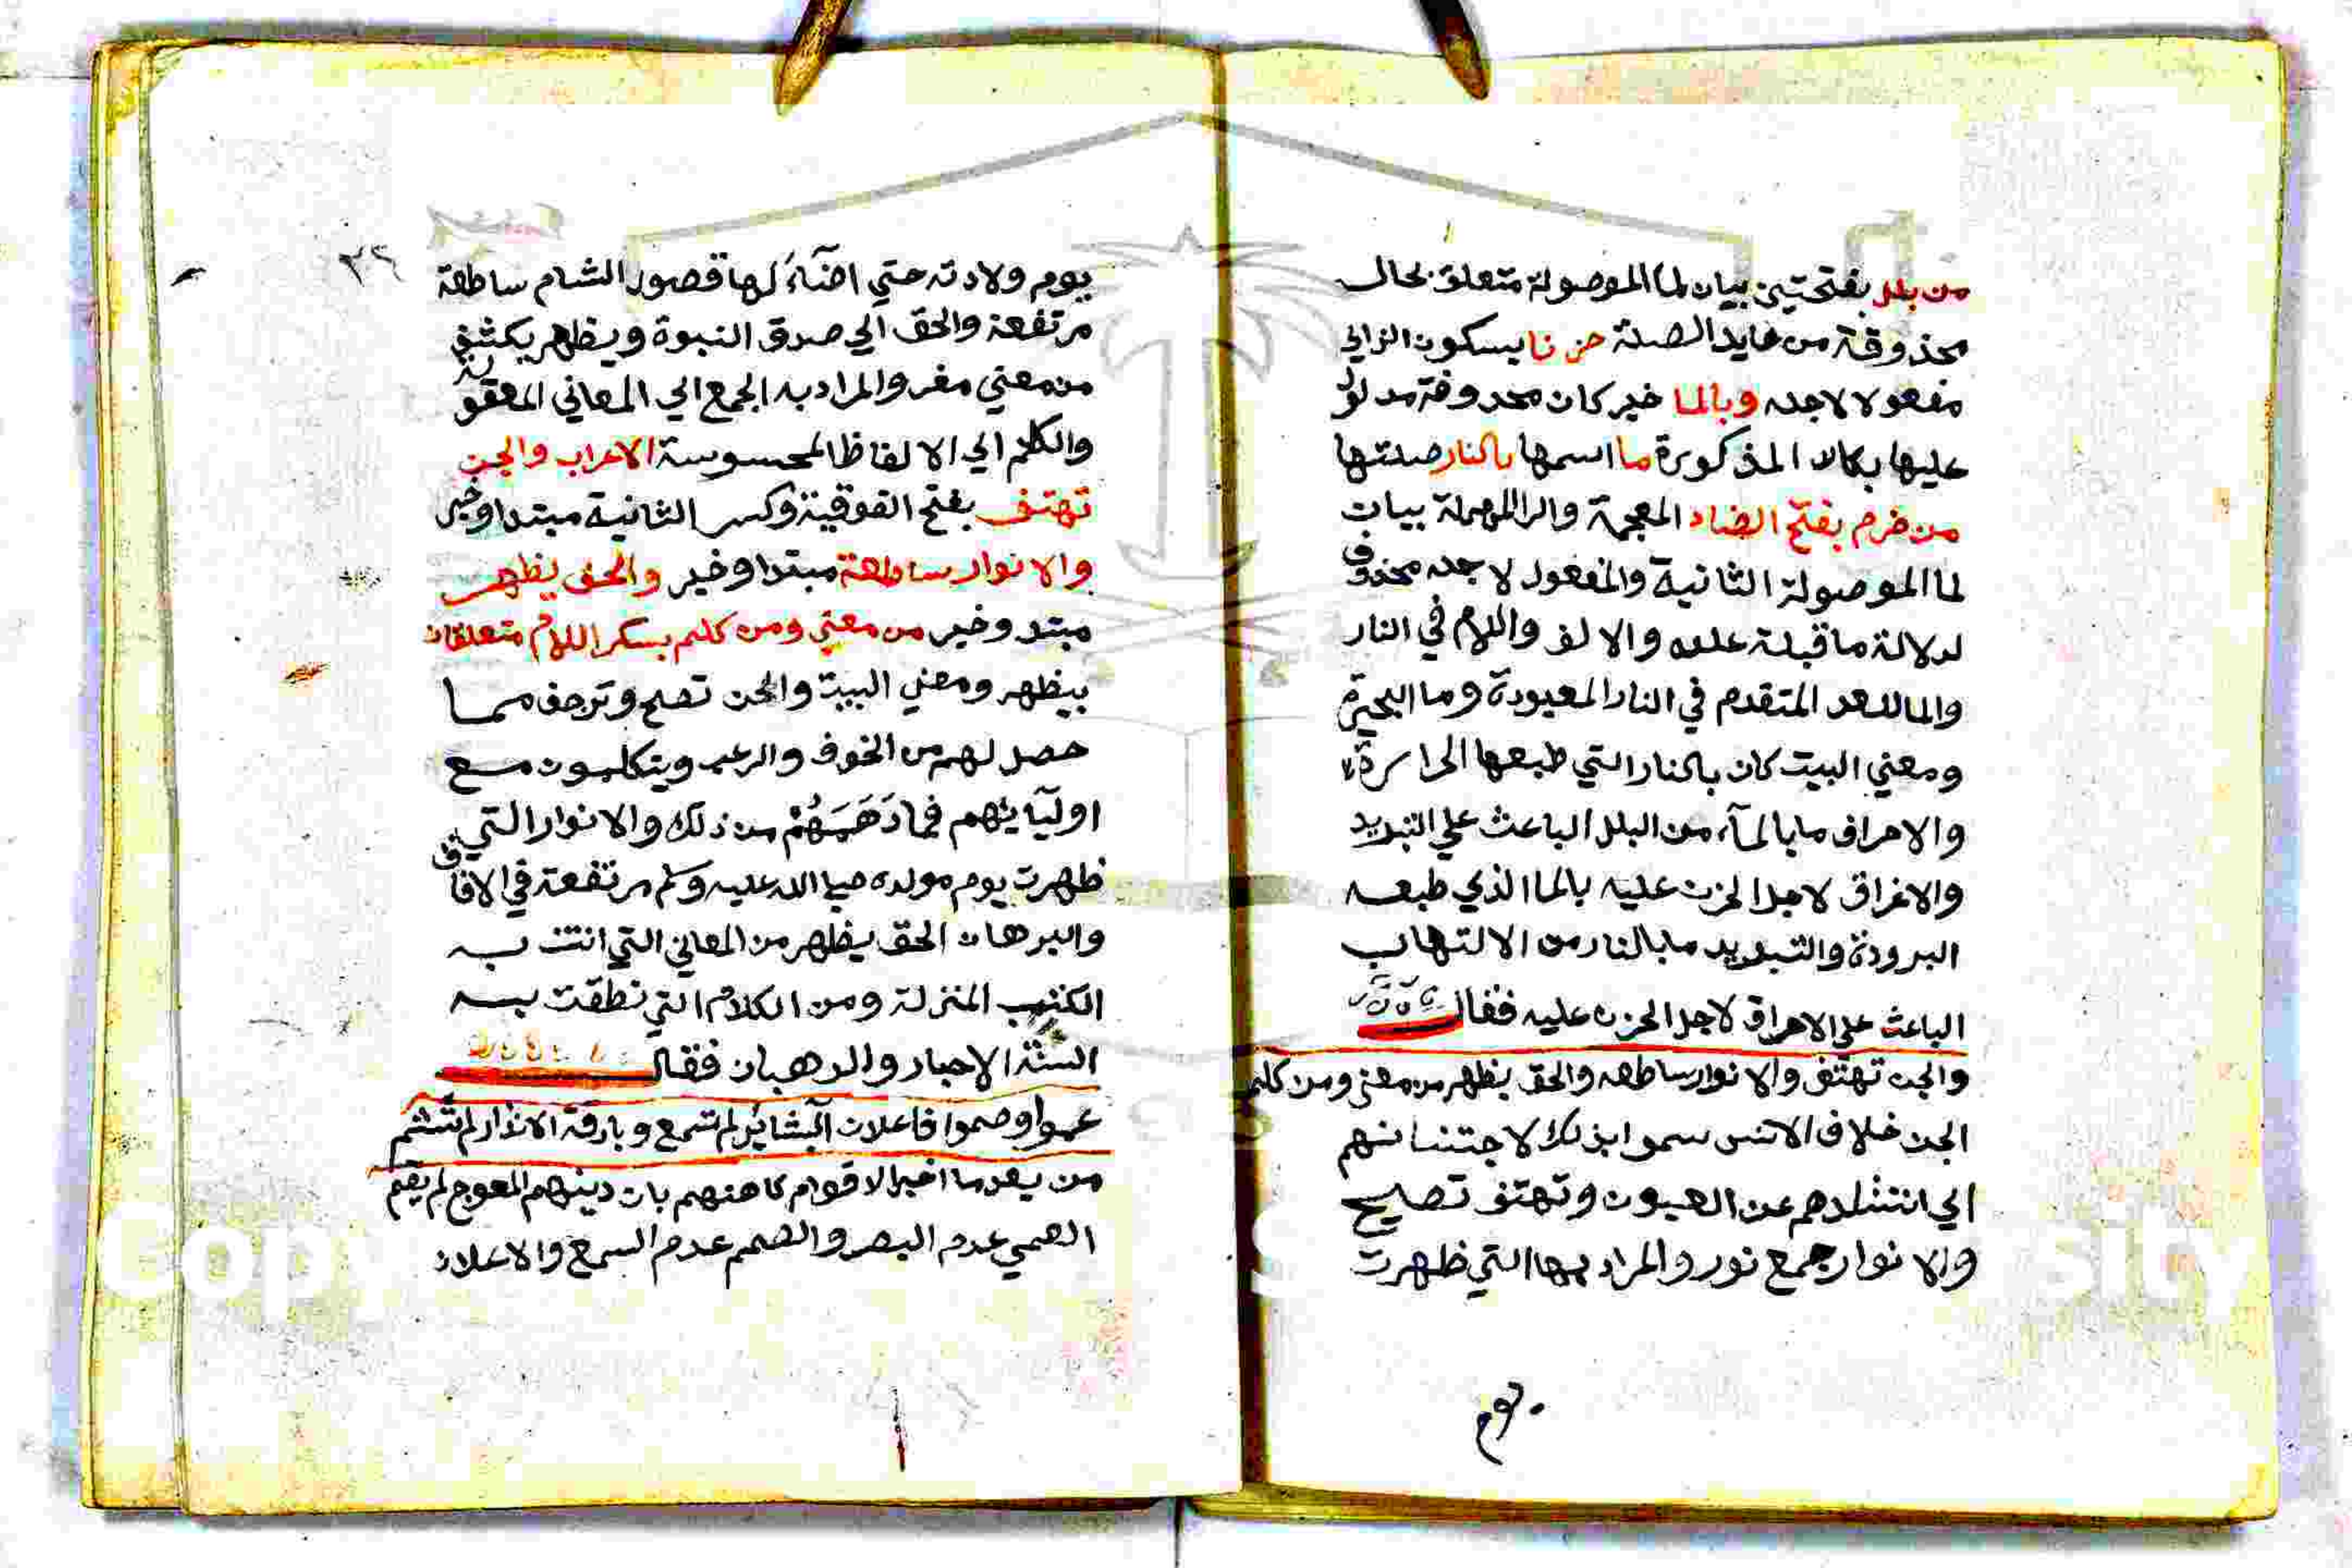 من بلل بفتحتين بيان لما الموصولة متعلق بحال
محذوفة من عايد الصلة حزنا بسكون الزاي
مفعولا لاجله وبالما خبر كان محذوفة مدلول
عليها بكان المذكورة ما اسمها بالنار صلتها
من ضرم بفتح الضاد المعجمة والرا المهملة بيان
لما الموصولة الثانية والمفعول لاجله محذوف
لدلالة ما قبله عليه والالف واللام في النار
والما للعهد المتقدم في النار المعبودة وما البحيرة
ومعني البيت كان بالنار التي طبعها الحراسرة
والاحراق ما بالمآء من البلل الباعث علي التبريد
والاغراق لاجل الحزن عليه بالما الذي طبعه
البرودة والتبريد ما بالنار من الالتهاب
الباعث علي الاحراق لاجل الحزن عليه فقال
والجن تهتف والانوار ساطعه والحق يظهر من معني ومن كلم
الجن خلاف الانس سموا بذلك لاجتنانهم
اي استتارهم عن العيون وتهتف تصيح
والانوار جمع نور والمراد بها التي ظهرت
يوم
٣٦
يوم ولادته حتي اضآءَ لها قصور الشام ساطعة
مرتفعة والحق اي صدق النبوة ويظهر يكشف
من معني مفر والمراد به الجمع اي المعاني المعقولة
والكلم اي الالفاظ المحسوسة الاعراب والجن
تهتف بفتح الفوقية وكسر الثانية مبتدا وخبر
والانوار ساطعة مبتدا وخبر والحق يظهر
مبتد وخبر من معني ومن كلم بسكر اللام متعلقان
بيظهر ومعني البيت والجن تصيح وترجف مما
حصل لهم من الخوف والرعب ويتكلمون مع
اوليآيهم فيما دَهَمَهُمْ من ذلك والانوار التي
ظهرت يوم مولده صلي الله عليه وسلم مرتفعة في الافاق
والبرهان الحق يظهر من المعاني التي اتت به
الكتب المنزلة ومن الكلام التي نطقت به
السنة الاحبار والرهبان فقال
عموا وصموا فاعلان البشائر لم تسمع وبارقة الانذار لم تشم
من بعد ما اخبر الاقوام كاهنهم بان دينهم المعوج لم يقم
العمي عدم البصر والصمم عدم السمع والاعلان